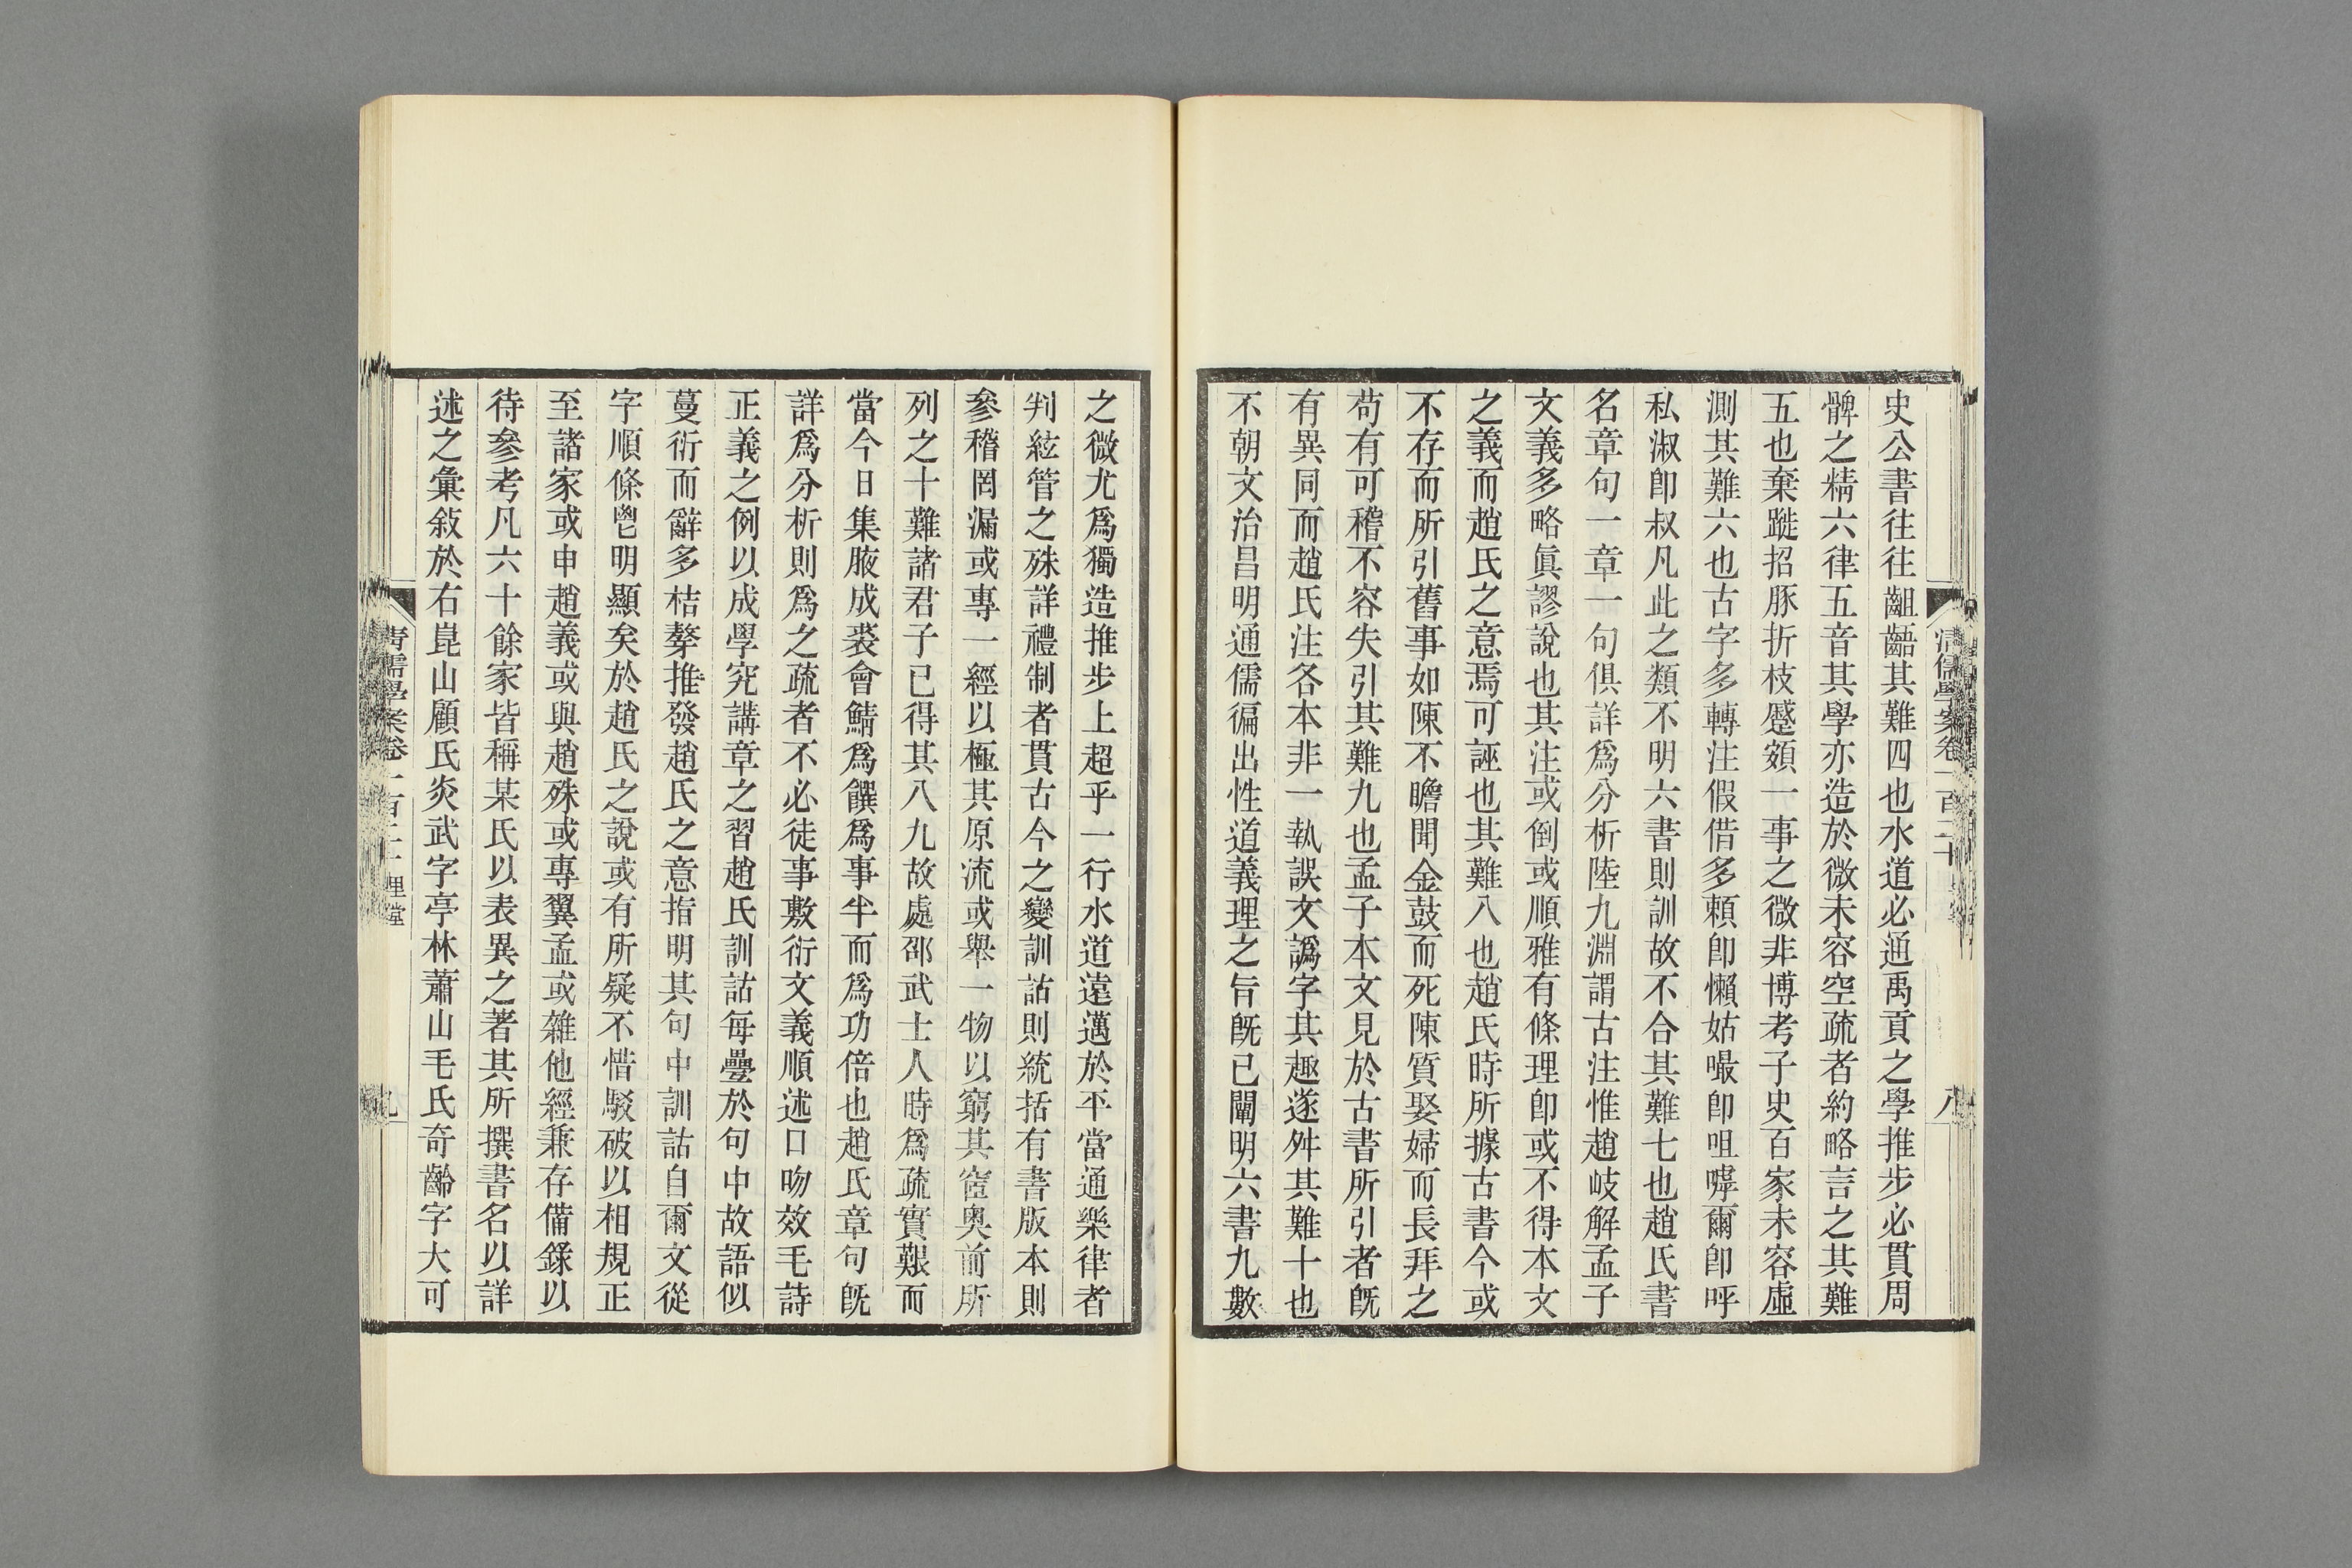 史公書往往齟齬其難四也水道必通禹貢之學推步必貫周
髀之精六律五音其學亦造於微未容空疏者約略言之其難
五也棄蹝招豚折枝蹙頞一事之微非博考子史百家未容虛
測其難六也古字多轉注假借多賴卽懶姑嘬卽咀嘑爾卽呼
私淑卽叔凡此之類不明六書則訓故不合其難七也趙氏書
名章句一章一句俱詳爲分析陸九淵謂古注惟趙岐解孟子
文義多略眞謬說也其注或倒或順雅有條理卽或不得本文
之義而趙氏之意焉可誣也其難八也趙氏時所據古書今或
不存而所引舊事如陳不瞻聞金鼓而死陳質娶婦而長拜之
苟有可稽不容失引其難九也孟子本文見於古書所引者旣
有異同而趙氏注各本非一執誤文譌字其趣遂舛其難十也
不朝文治昌明通儒徧出性道義理之旨旣已闡明六書九數
清儒學案卷一百二十
八
之微尤爲獨造推步上超乎一行水道遠邁於平當通樂律者
判絃管之殊詳禮制者貫古今之變訓詁則統括有書版本則
參稽罔漏或專一經以極其原流或舉一物以窮其窔奧前所
列之十難諸君子已得其八九故處邵武士人時爲疏實艱而
當今日集腋成裘會鯖爲饌爲事半而爲功倍也趙氏章句旣
詳爲分析則爲之疏者不必徒事敷衍文義順述口吻效毛詩
正義之例以成學究講章之習趙氏訓詁每曡於句中故語似
蔓衍而辭多桔㯶推發趙氏之意指明其句中訓詁自爾文從
字順條鬯明顯矣於趙氏之說或有所疑不惜駮破以相規正
至諸家或申趙義或與趙殊或專翼孟或雜他經兼存備錄以
待參考凡六十餘家皆稱某氏以表異之著其所撰書名以詳
述之彙敍於右崑山顧氏炎武字亭林蕭山毛氏奇齡字大可
清儒學案卷一百二十 理堂
九